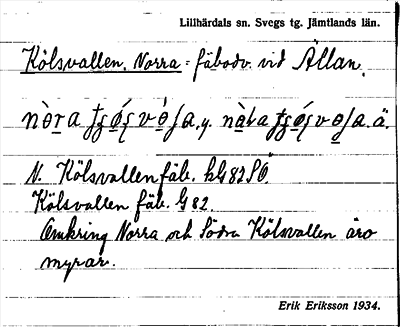 Lillhärdals sn. Svegs tg. Jämtlands län.
Kölsvallen, Norra = fäbodv. vid Ällan.
y. ä.
N. Kölsvallen fäb. kG82SÖ.
Kölsvallen fäb. G82.
Omkring Norra och Södra Kölsvallen äro
myrar.
Erik Eriksson 1934.